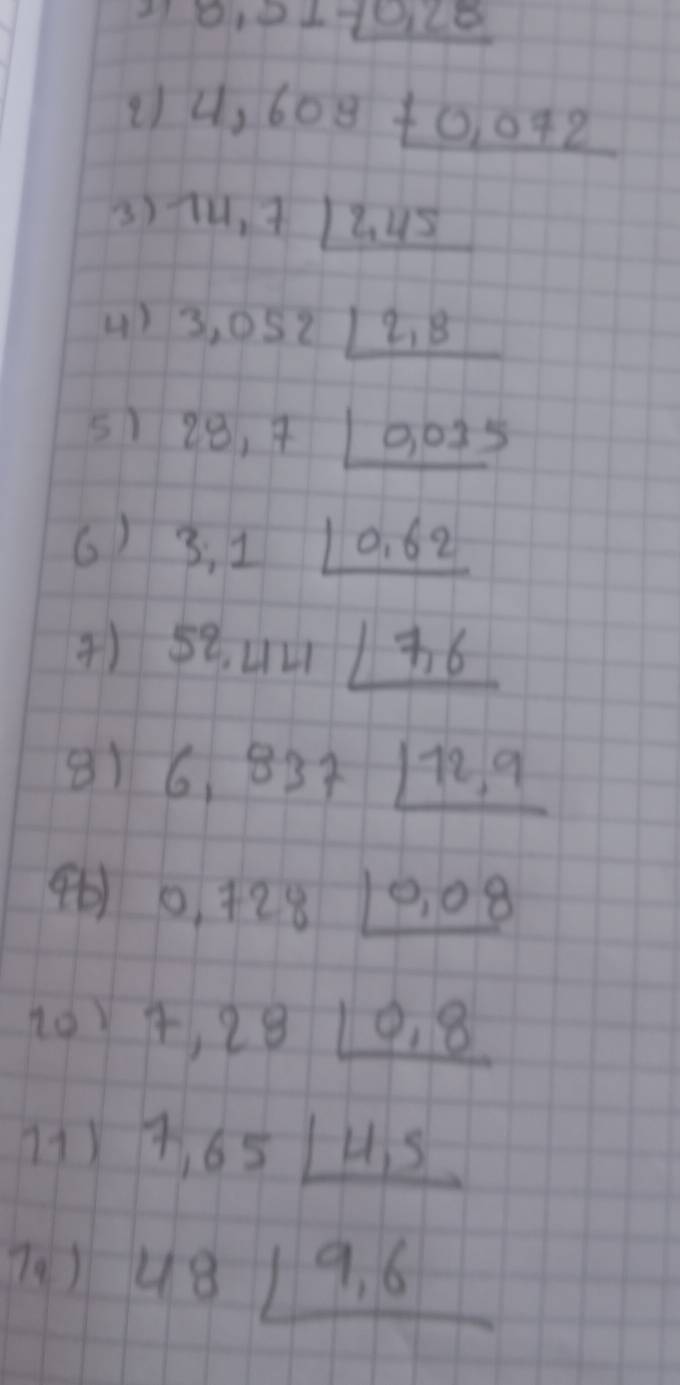 2) 4,608 0,072
3) 14,7 2,45
4) 3,052 2,8
5) 28,7 0,035
6) 3,1 0,62
7) 52.44 7,6
8) 6,837 12,9
9b) 0,728 0,08
10) 7,28 0,8
11) 7,65 4,5
48 9,6